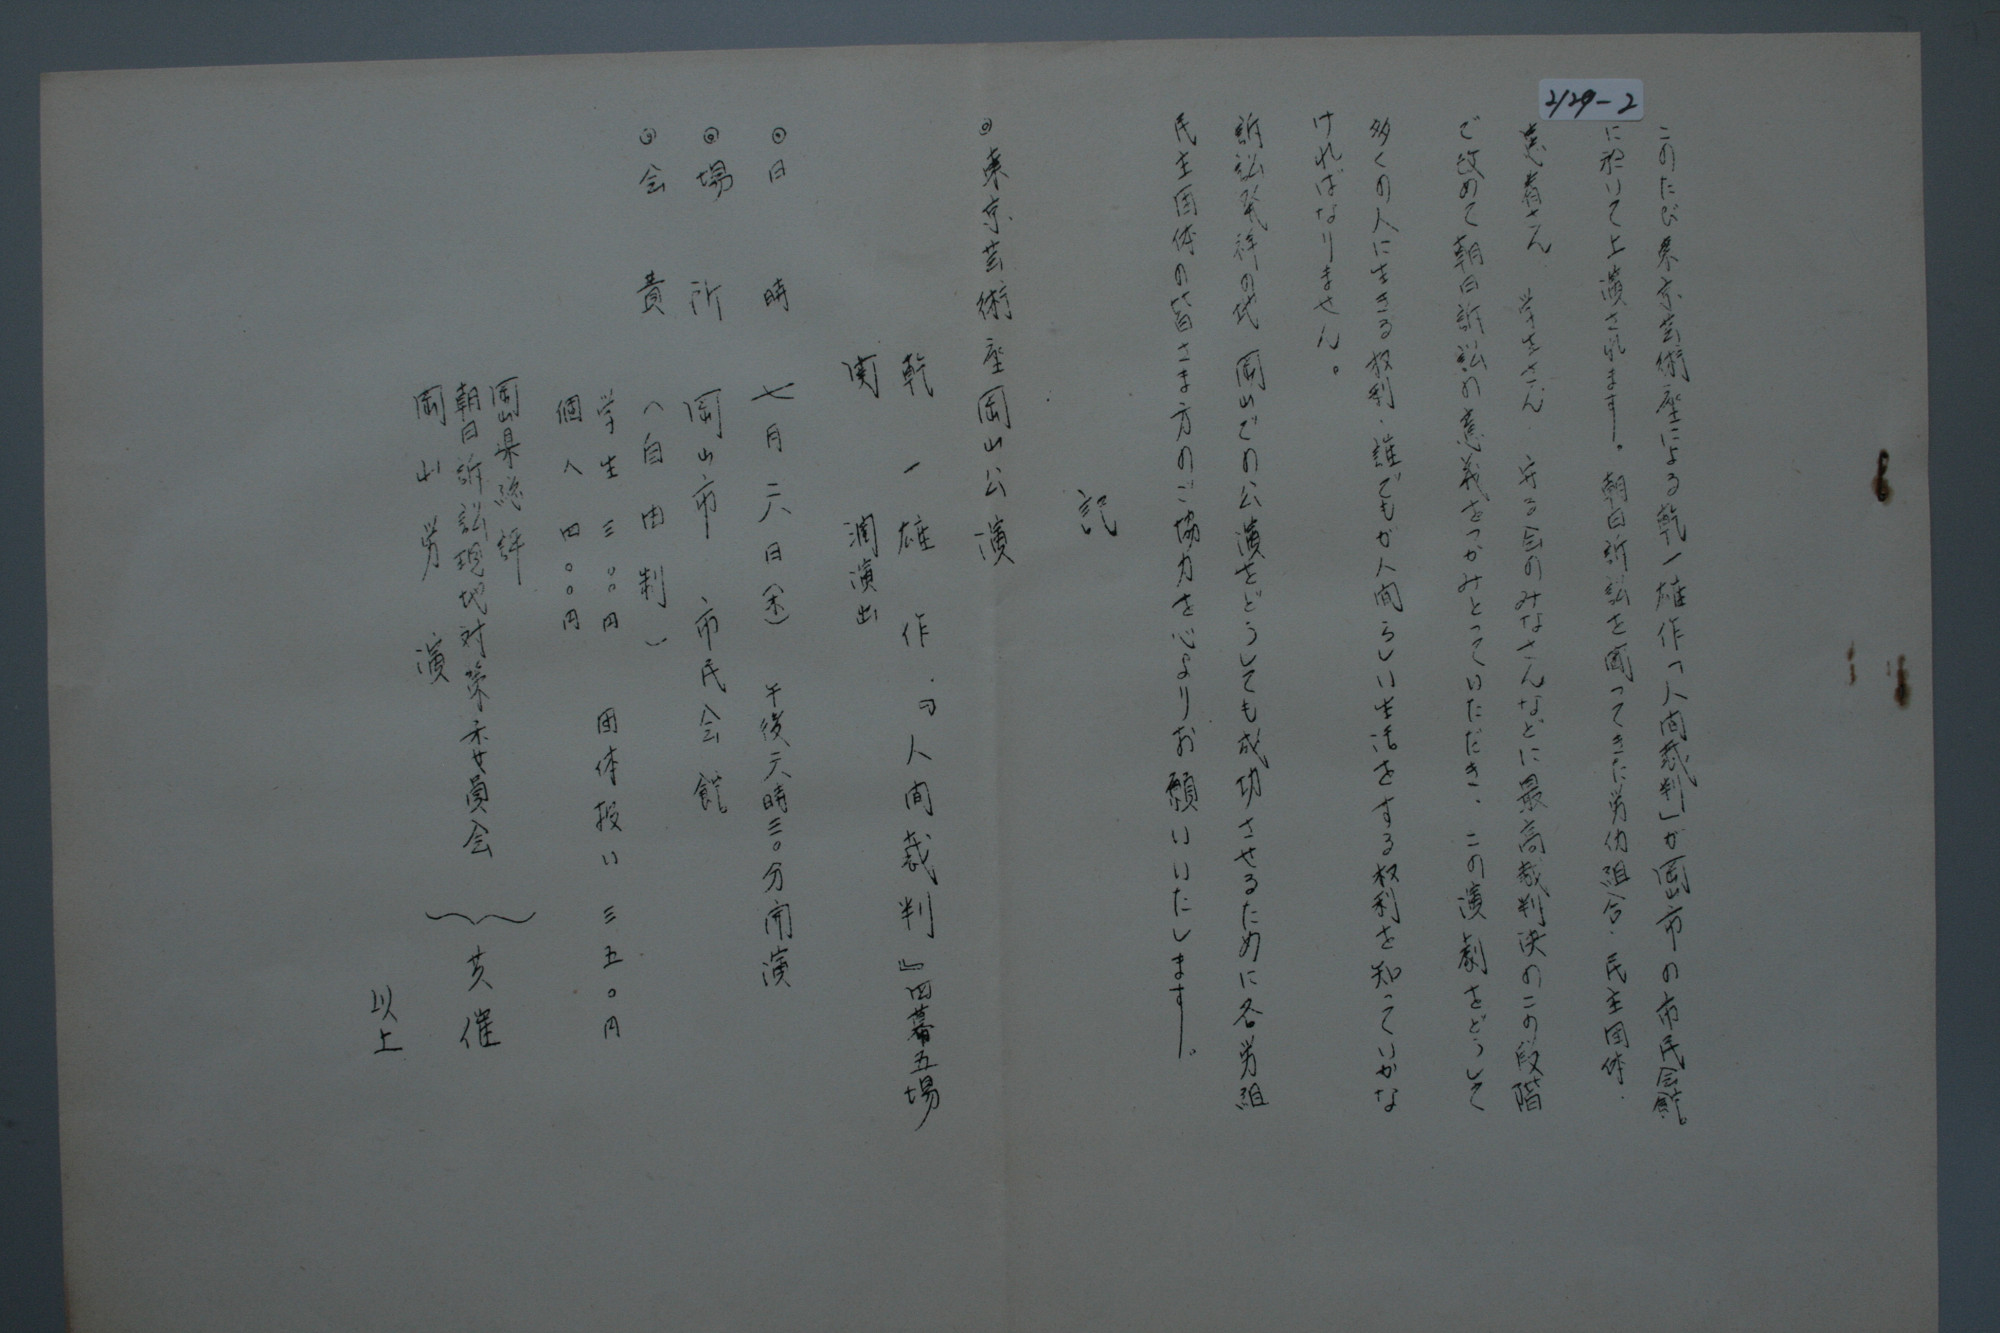 2129-2
このたび東京芸術座による乾一雄作「人間裁判」が岡山市の市民会館
に於いて上演されます。朝日訴訟を闘ってきた労仂組合・民主団体・
患者さん・学生さん・守る会のみなさんなどに最高裁判決のこの段階
で改めて朝日訴訟の意義をつかみとっていただき、この演劇をどうして
多くの人に生きる权利・誰でもが人間らしい生活をする权利を知っていかな
ければなりません。
訴訟発祥の地 岡山での公演をどうしても成功させるために各労組
民主団体の皆さま方のご協力を心よりお願いいたします。
記
◎東京芸術座岡山公演
乾一雄 作『人間裁判』四幕五場
関 演出
◎日時 七月二六日 午後六時三〇分開演
◎場所 岡山市 市民会館
◎会費（自由制）
学生 三〇〇円 団体扱い 三五〇円
個人 四〇〇円
岡山県総評
朝日訴訟現地対策委員会 共催
岡山労演
以上